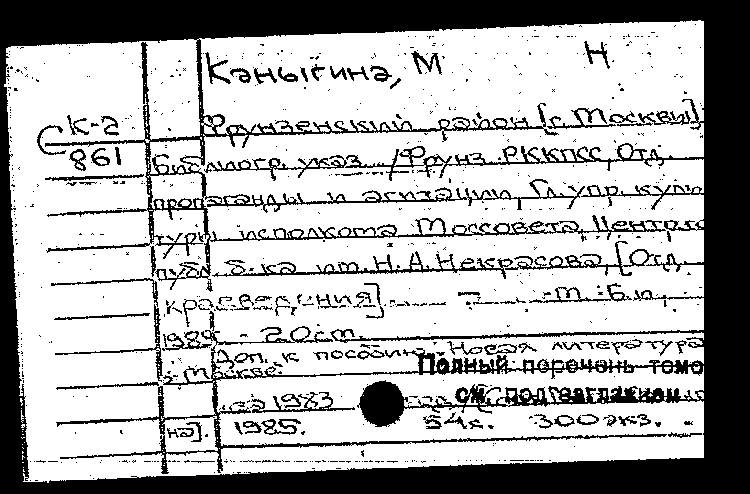 Каныгина, М Н
К-2
С 861
Фрунзенский район [г. Москвы]
Библиогр. указ. /Фрунз. РККПСС, Отд.
пропаганды и агитации, Гл. упр. куль
туры исполкома Моссовета, Центр. го
публ. б-ка им. Н. А. Некрасова, [Отд.
краеведения]. - М.: Б.и.,
198 - 20 см.
Доп. к пособию: Новая литература
о Москве
Полный перечень томо
см. под заглавием
за 1983
на]. 1985. 54 с. 300 экз.